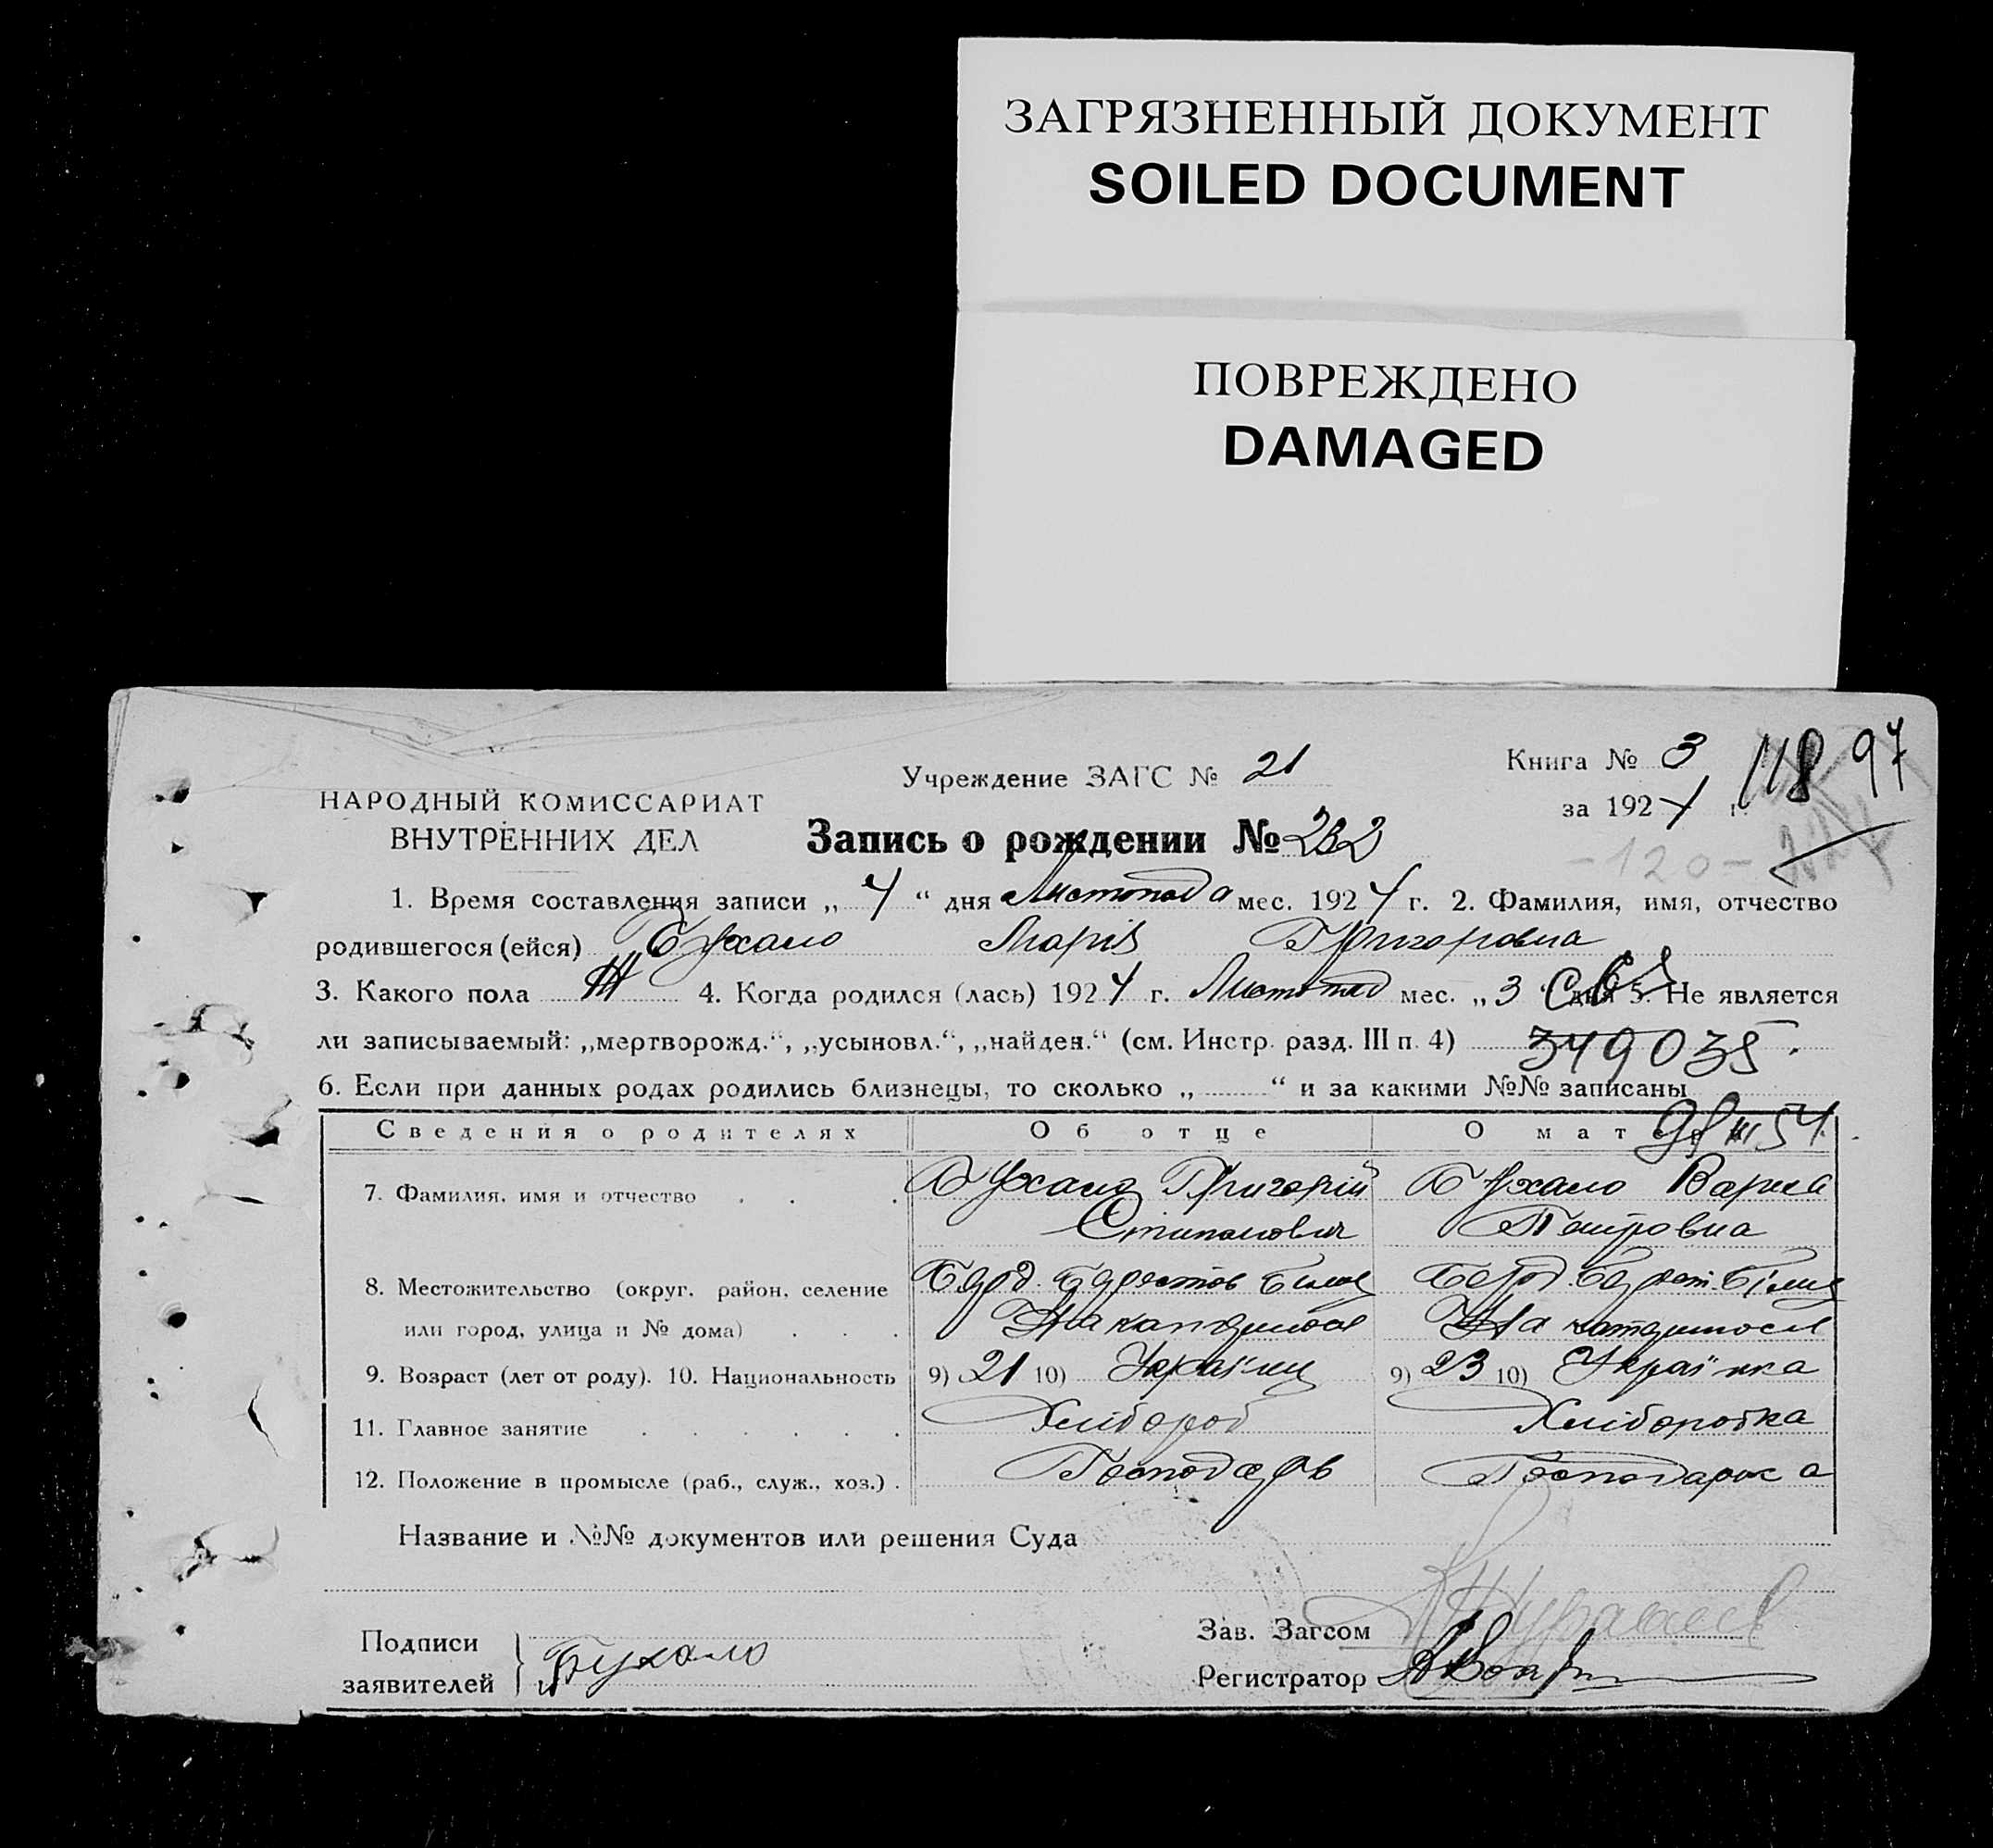 ЗАГРЯЗНЕННЫЙ ДОКУМЕНТ
SOILED DOCUMENT
ПОВРЕЖДЕНО
DAMAGED
Учреждение ЗАГС № 21
Книга № 3
118 97
НАРОДНЫЙ КОМИССАРИАТ
ВНУТРЕННИХ ДЕЛ
за 1924 г.
Запись о рождении № 232
-120-
1. Время составления записи „ 4 “ дня Листопада мес. 1924 г. 2. Фамилия, имя, отчество
родившегося (ейся) Бухало Марія Григоровна
3. Какого пола Ж 4. Когда родился (лась) 1924 г. Листопад мес. „ 3 “ дня 5. Не является
ли записываемый: „мертворожд.“, „усыновл.“, „найден.“ (см. Инстр. разд. III п. 4) 349035.
6. Если при данных родах родились близнецы, то сколько „ “ и за какими №№ записаны
Сведения о родителях Об отце О матери
7. Фамилия, имя и отчество Бухало Григорій Бухало Варка
Степанович Петровна
8. Местожительство (округ, район, селение
или город, улица и № дома)
9. Возраст (лет от роду). 10. Национальность 9) 21 10) Україн 9) 23 10) Українка
11. Главное занятие Хлібороб Хліборобка
12. Положение в промысле (раб., служ., хоз.) Господарь Господарка
Название и №№ документов или решения Суда
Подписи
заявителей Бухало
Зав. Загсом
Регистратор